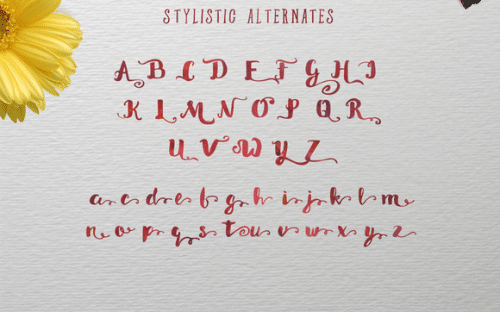 STYLISTIC ALTERNATES
A B C D E F G H I
K L M N O P Q R
U V W Y Z
a c d e f g h i j k l m
n o p q s t u v w x y z